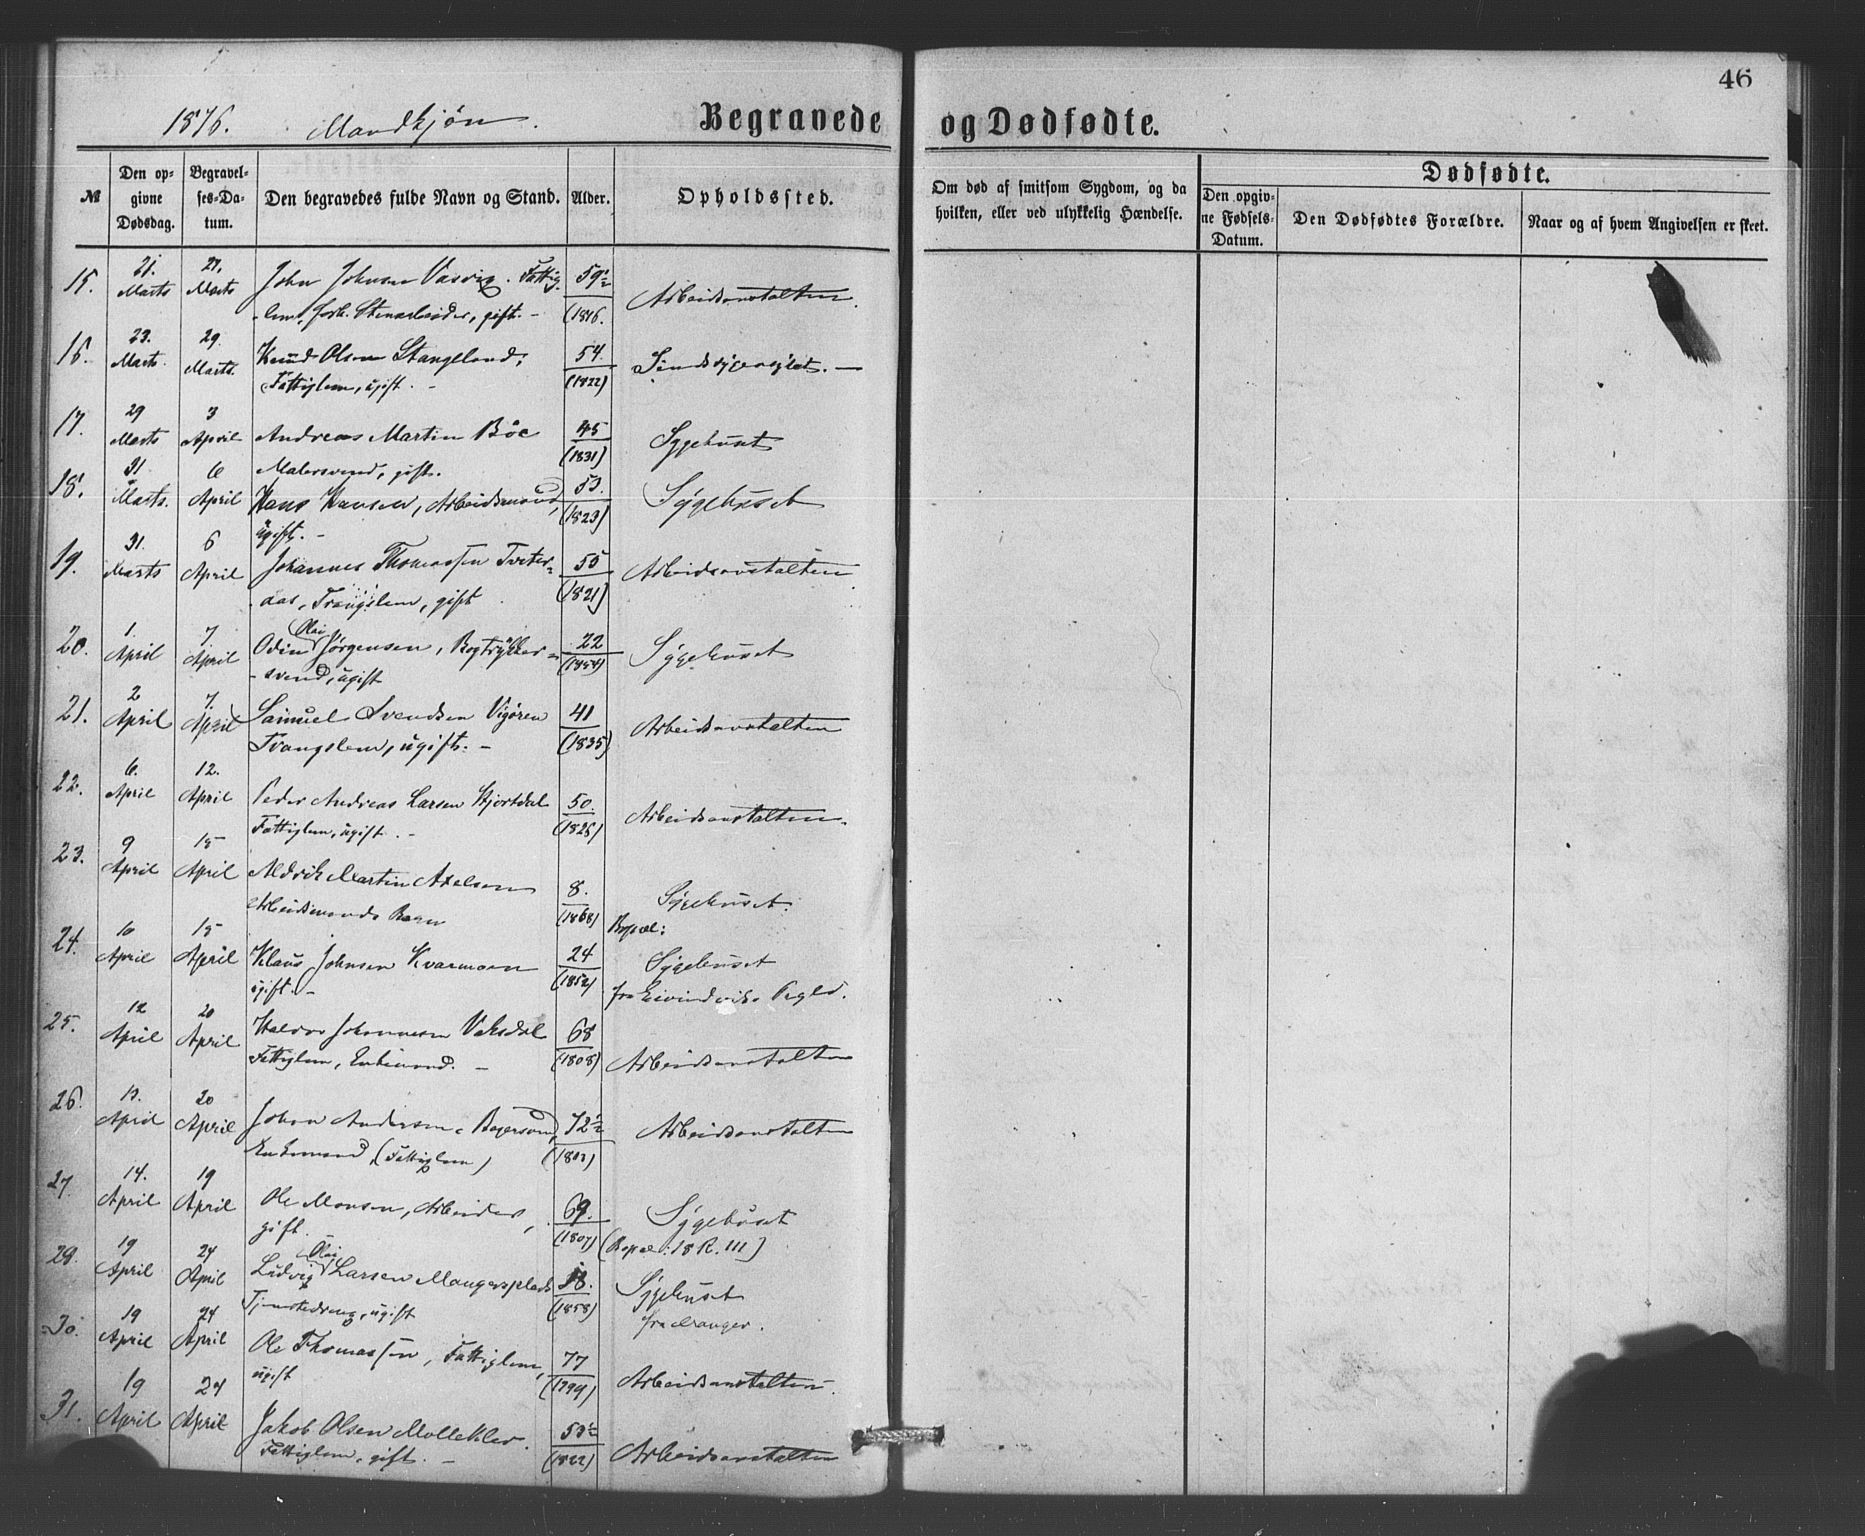 46
1876. Mandkjøn.
Begravede og Dødfødte.
№
Den opgivne Dødsdag.
Begravelses-Datum.
Den begravedes fulde Navn og Stand.
Alder.
Opholdssted.
Om død af smitsom Sygdom, og da hvilken, eller ved ulykkelig Hændelse.
Dødfødte.
Den opgivne Fødsels-Datum.
Den Dødfødtes Forældre.
Naar og af hvem Angivelsen er skeet.
15. 21. Marts 27. Marts John Johnsen Fattig- 59½ Arbeidsanstalten.
lem, forh. Stenarbeider, gift. - (1816.
16. 23. Marts. 29. Marts. Knud Olsen Stangeland, 54. Sindssygeasylet. —
Fattiglem, ugift. - (1822)
17. 29 Marts 3 April Andreas Martin Bøe 45 Sygehuset
Malersvend, gift. (1831)
18. 31 Marts. 6 April Hans Hansen, Arbeidsmand, 53. Sygehuset
ugift. - (1823)
19. 31. Marts 6 April Johannes Thomassen Tveter- 55 Arbeidsanstalten
aas, Tvangslem, gift (1821)
20. 1. April 7. April Odin Olai Jørgensen, Bogtrykker- 22 Sygehuset
svend, ugift (1854)
21. 2 April 7. April Samuel Svendsen Vigøren 41 Arbeidsanstalten
Tvangslem, ugift. - (1835)
22. 6. April 12. April Peder Andreas Larsen Hjortdal 50. Arbeidsanstalten.
Fattiglem, ugift. - (1826)
23. 9 April 15 April Martin Axelsen 8. Sygehuset.
Arbeidsmands Barn (1868) Bopæl:
24. 10 April 15 April Klaus Johnsen Kvammen 24 Sygehuset
ugift. - (1852) fra Eivindviks Prgld.
25. 12 April 20 April Haldor Johannesen Vaksdal 68 Arbeidsanstalten
Fattiglem, Enkemand. - (1808)
26. 13. April 20 April Johan Andersen 72½ Arbeidsanstalten
Enkemand, (Fattiglem) (1803)
27. 14. April 19 April Ole Monsen, Arbeider, 69. Sygehuset
gift. (1807) (Bopæl: 18 R. III)
29. 19 April 24 April Ludvig Olai Larsen Mangersplads 18. Sygehuset
Tjenestedreng, ugift (1858) fra Manger.
30. 19 April 24 April Ole Thomassen, Fattiglem, 77 Arbeidsanstalten.
ugift (1799)
31. 19 April 24 April Jakob Olsen Mollekler. 53½ Arbeidsanstalten
Fattiglem, gift. - (1822)